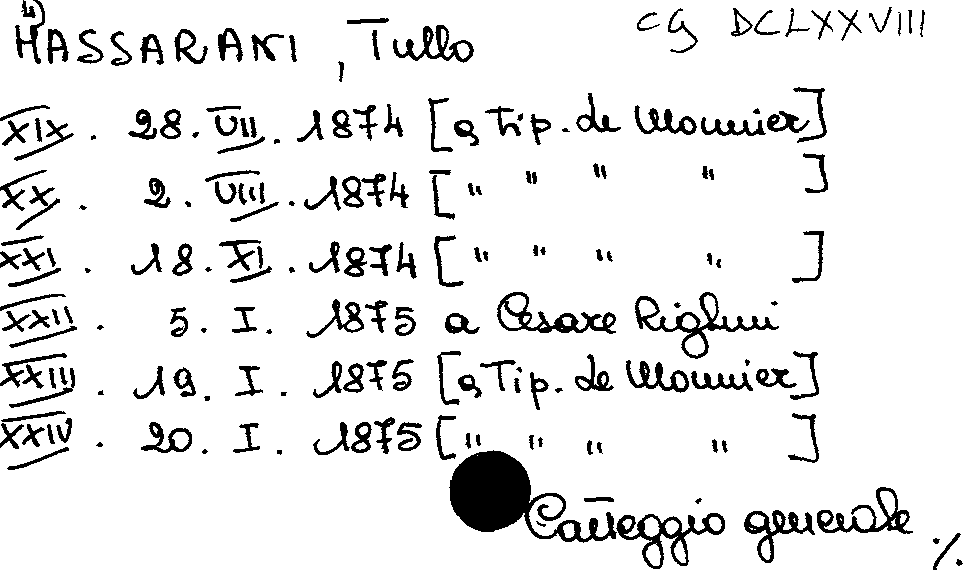 4)
MASSARANI, Tullo CG DCLXXVIII
XIX. 28. VII. 1874 [a Tip. Le Monnier]
XX. 2. VIII. 1874 [" " " "]
XXI. 18. XI. 1874 [" " " "]
XXII. 5. I. 1875 a Cesare Righini
XXIII. 19. I. 1875 [a Tip. Le Monnier]
XXIV. 20. I. 1875 [" " " "]
Carteggio generale ./.